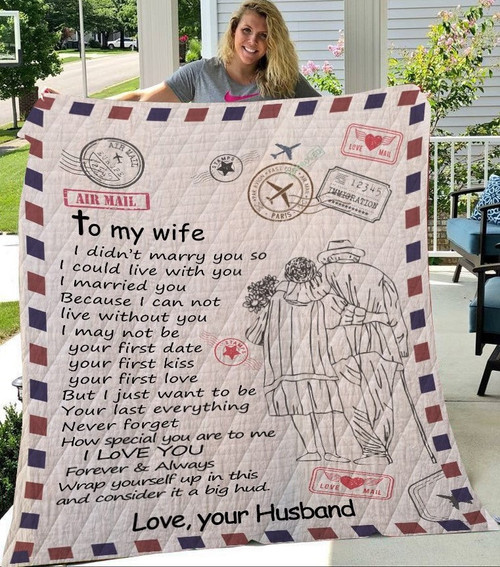 AIR MAIL
STAMPS
LOVE MAIL
12345
IMMIGRATION
PARIS
AIR MAIL
To my wife
I didn't marry you so
I could live with you
I married you
Because I can not
live without you
I may not be
your first date
your first kiss
your first love
But I just want to be
Your last everything
Never forget
How special you are to me
I LOVE YOU
Forever & Always
Wrap yourself up in this
and consider it a big hud.
Love, your Husband
STAMPS
LOVE MAIL